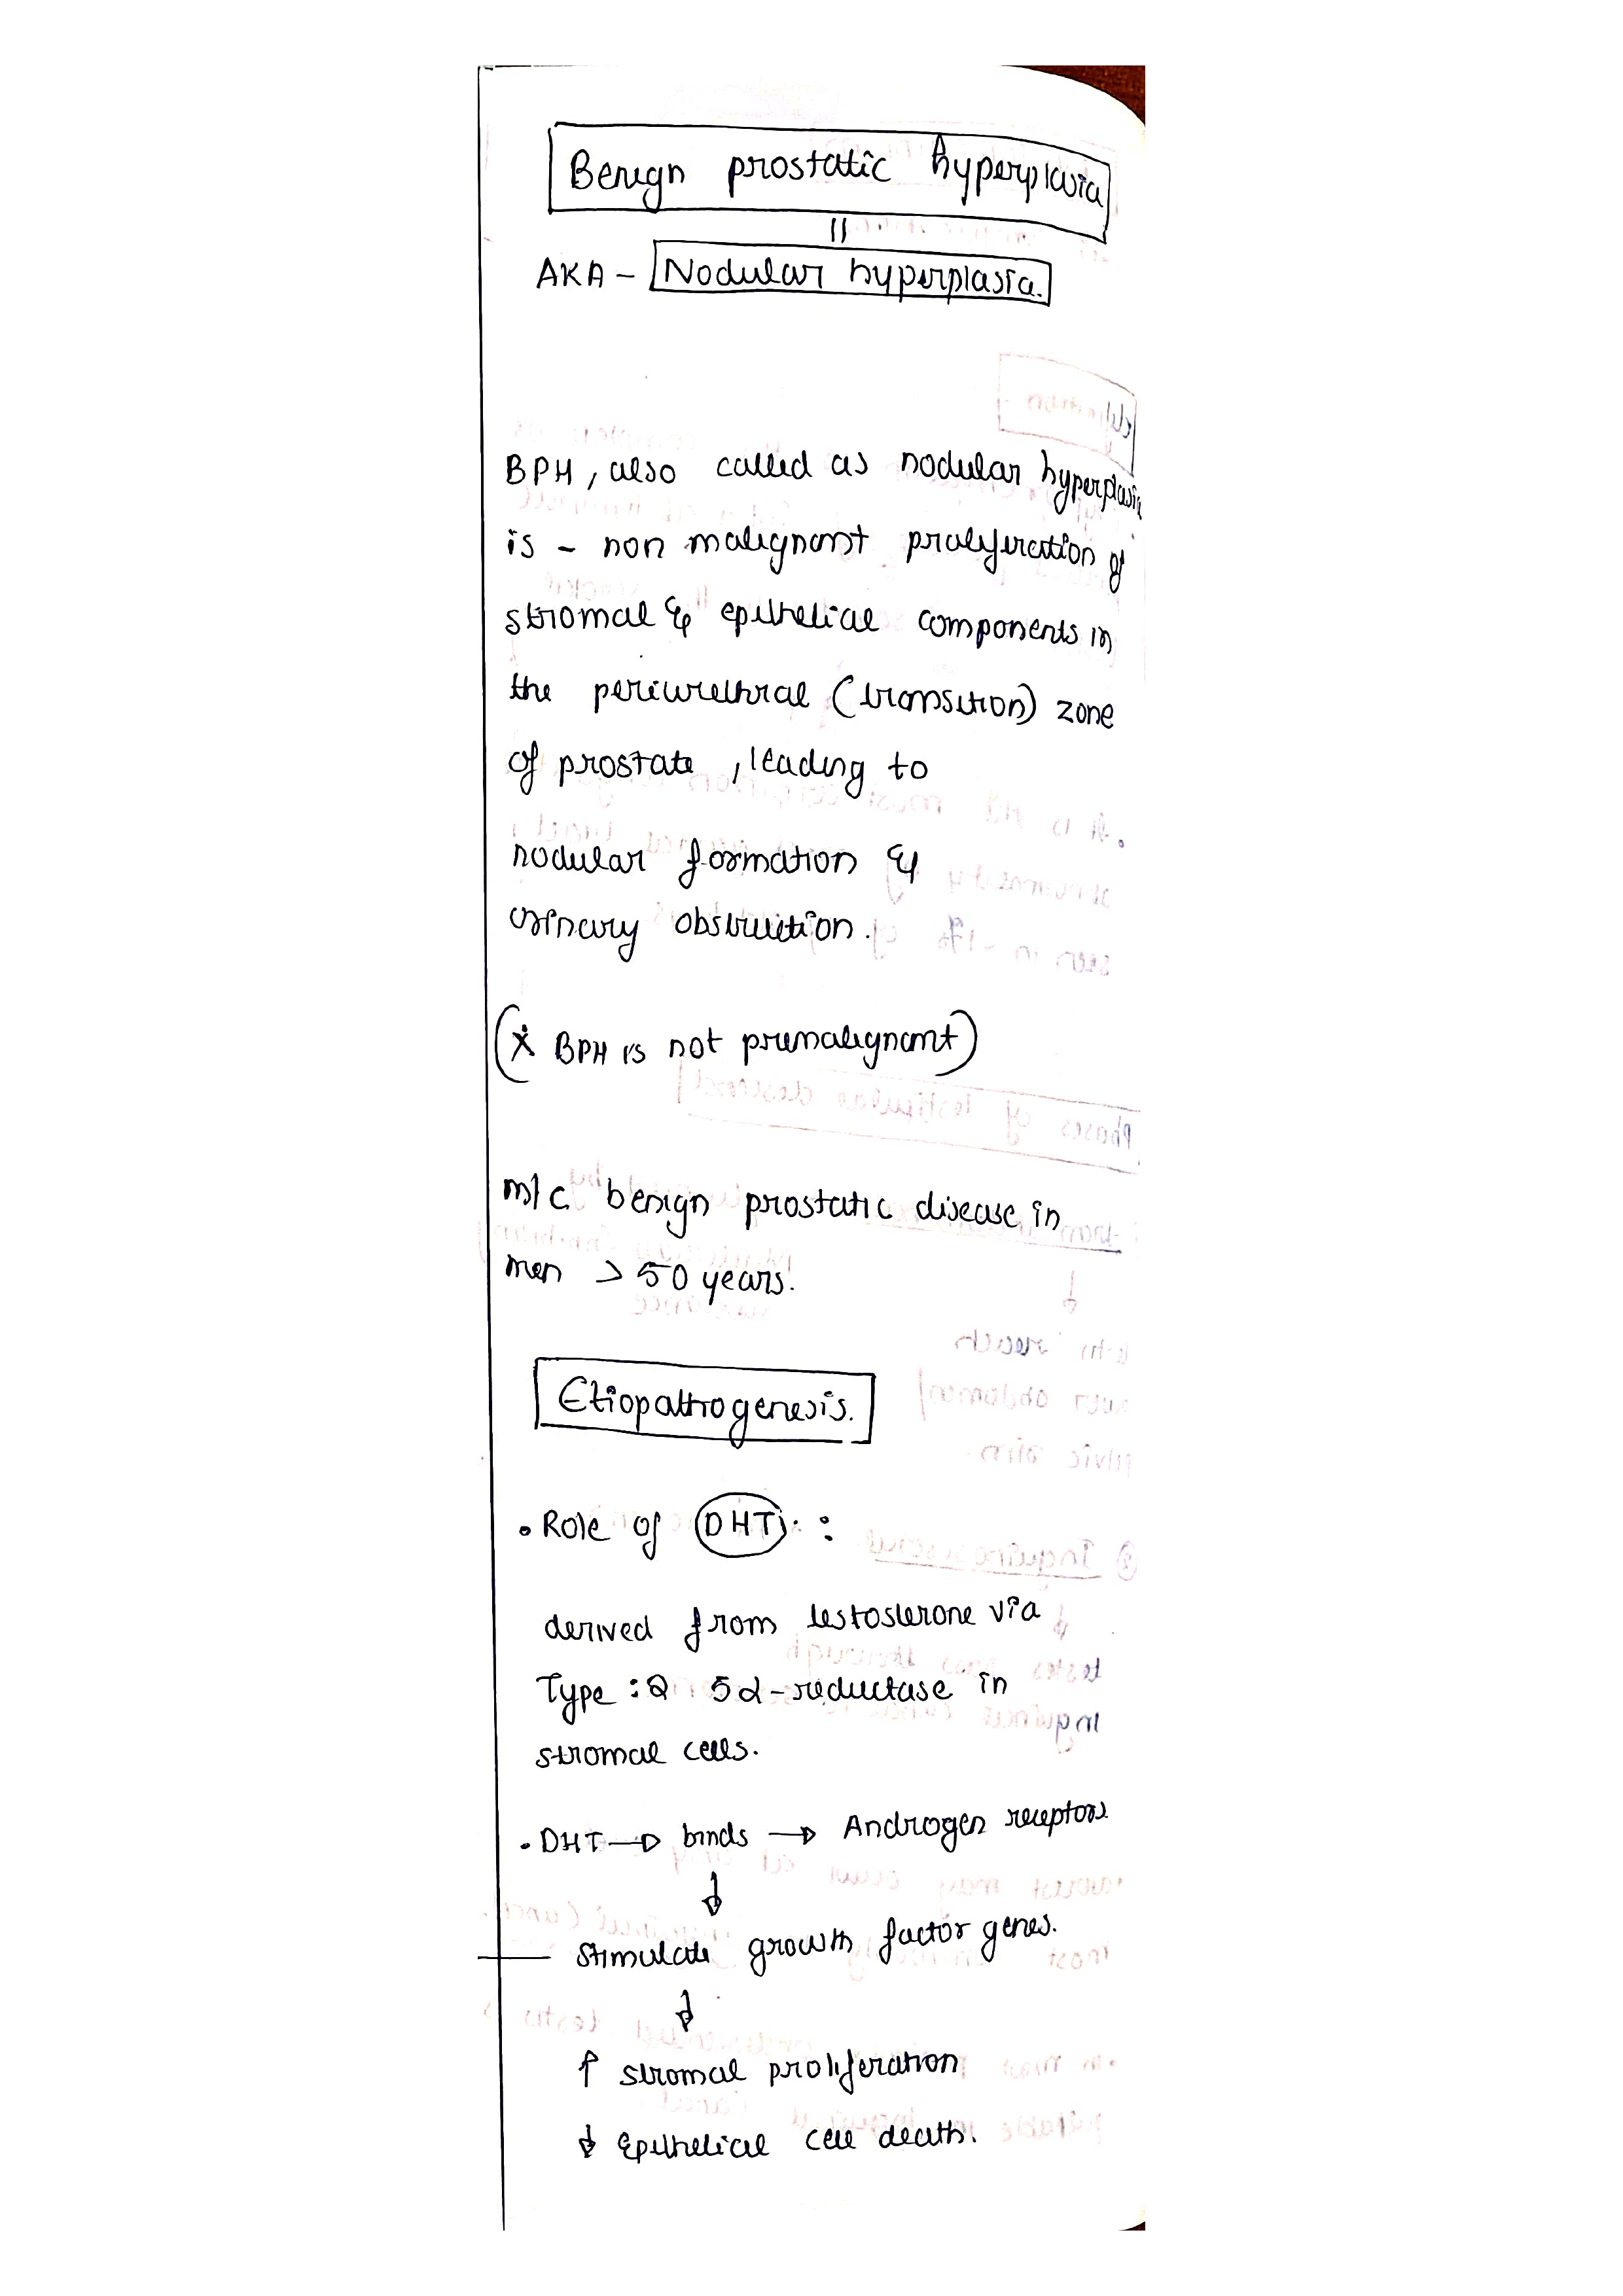 Benign prostatic hyperplasia
AKA - Nodular hyperplasia.
BPH, also called as nodular hyperplasia
is - non malignant proliferation of
stromal & epithelial components in
the periurethral (transition) zone
of prostate, leading to
nodular formation &
urinary obstruction.
(* BPH is not premalignant)
m/c benign prostatic disease in
men > 50 years.
Etiopathogenesis.
• Role of DHT :
derived from testosterone via
Type:2 5α-reductase in
stromal cells.
• DHT → binds → Androgen receptors
↓
stimulate growth factor genes.
↓
↑ stromal proliferation
↓ Epithelial cell death.